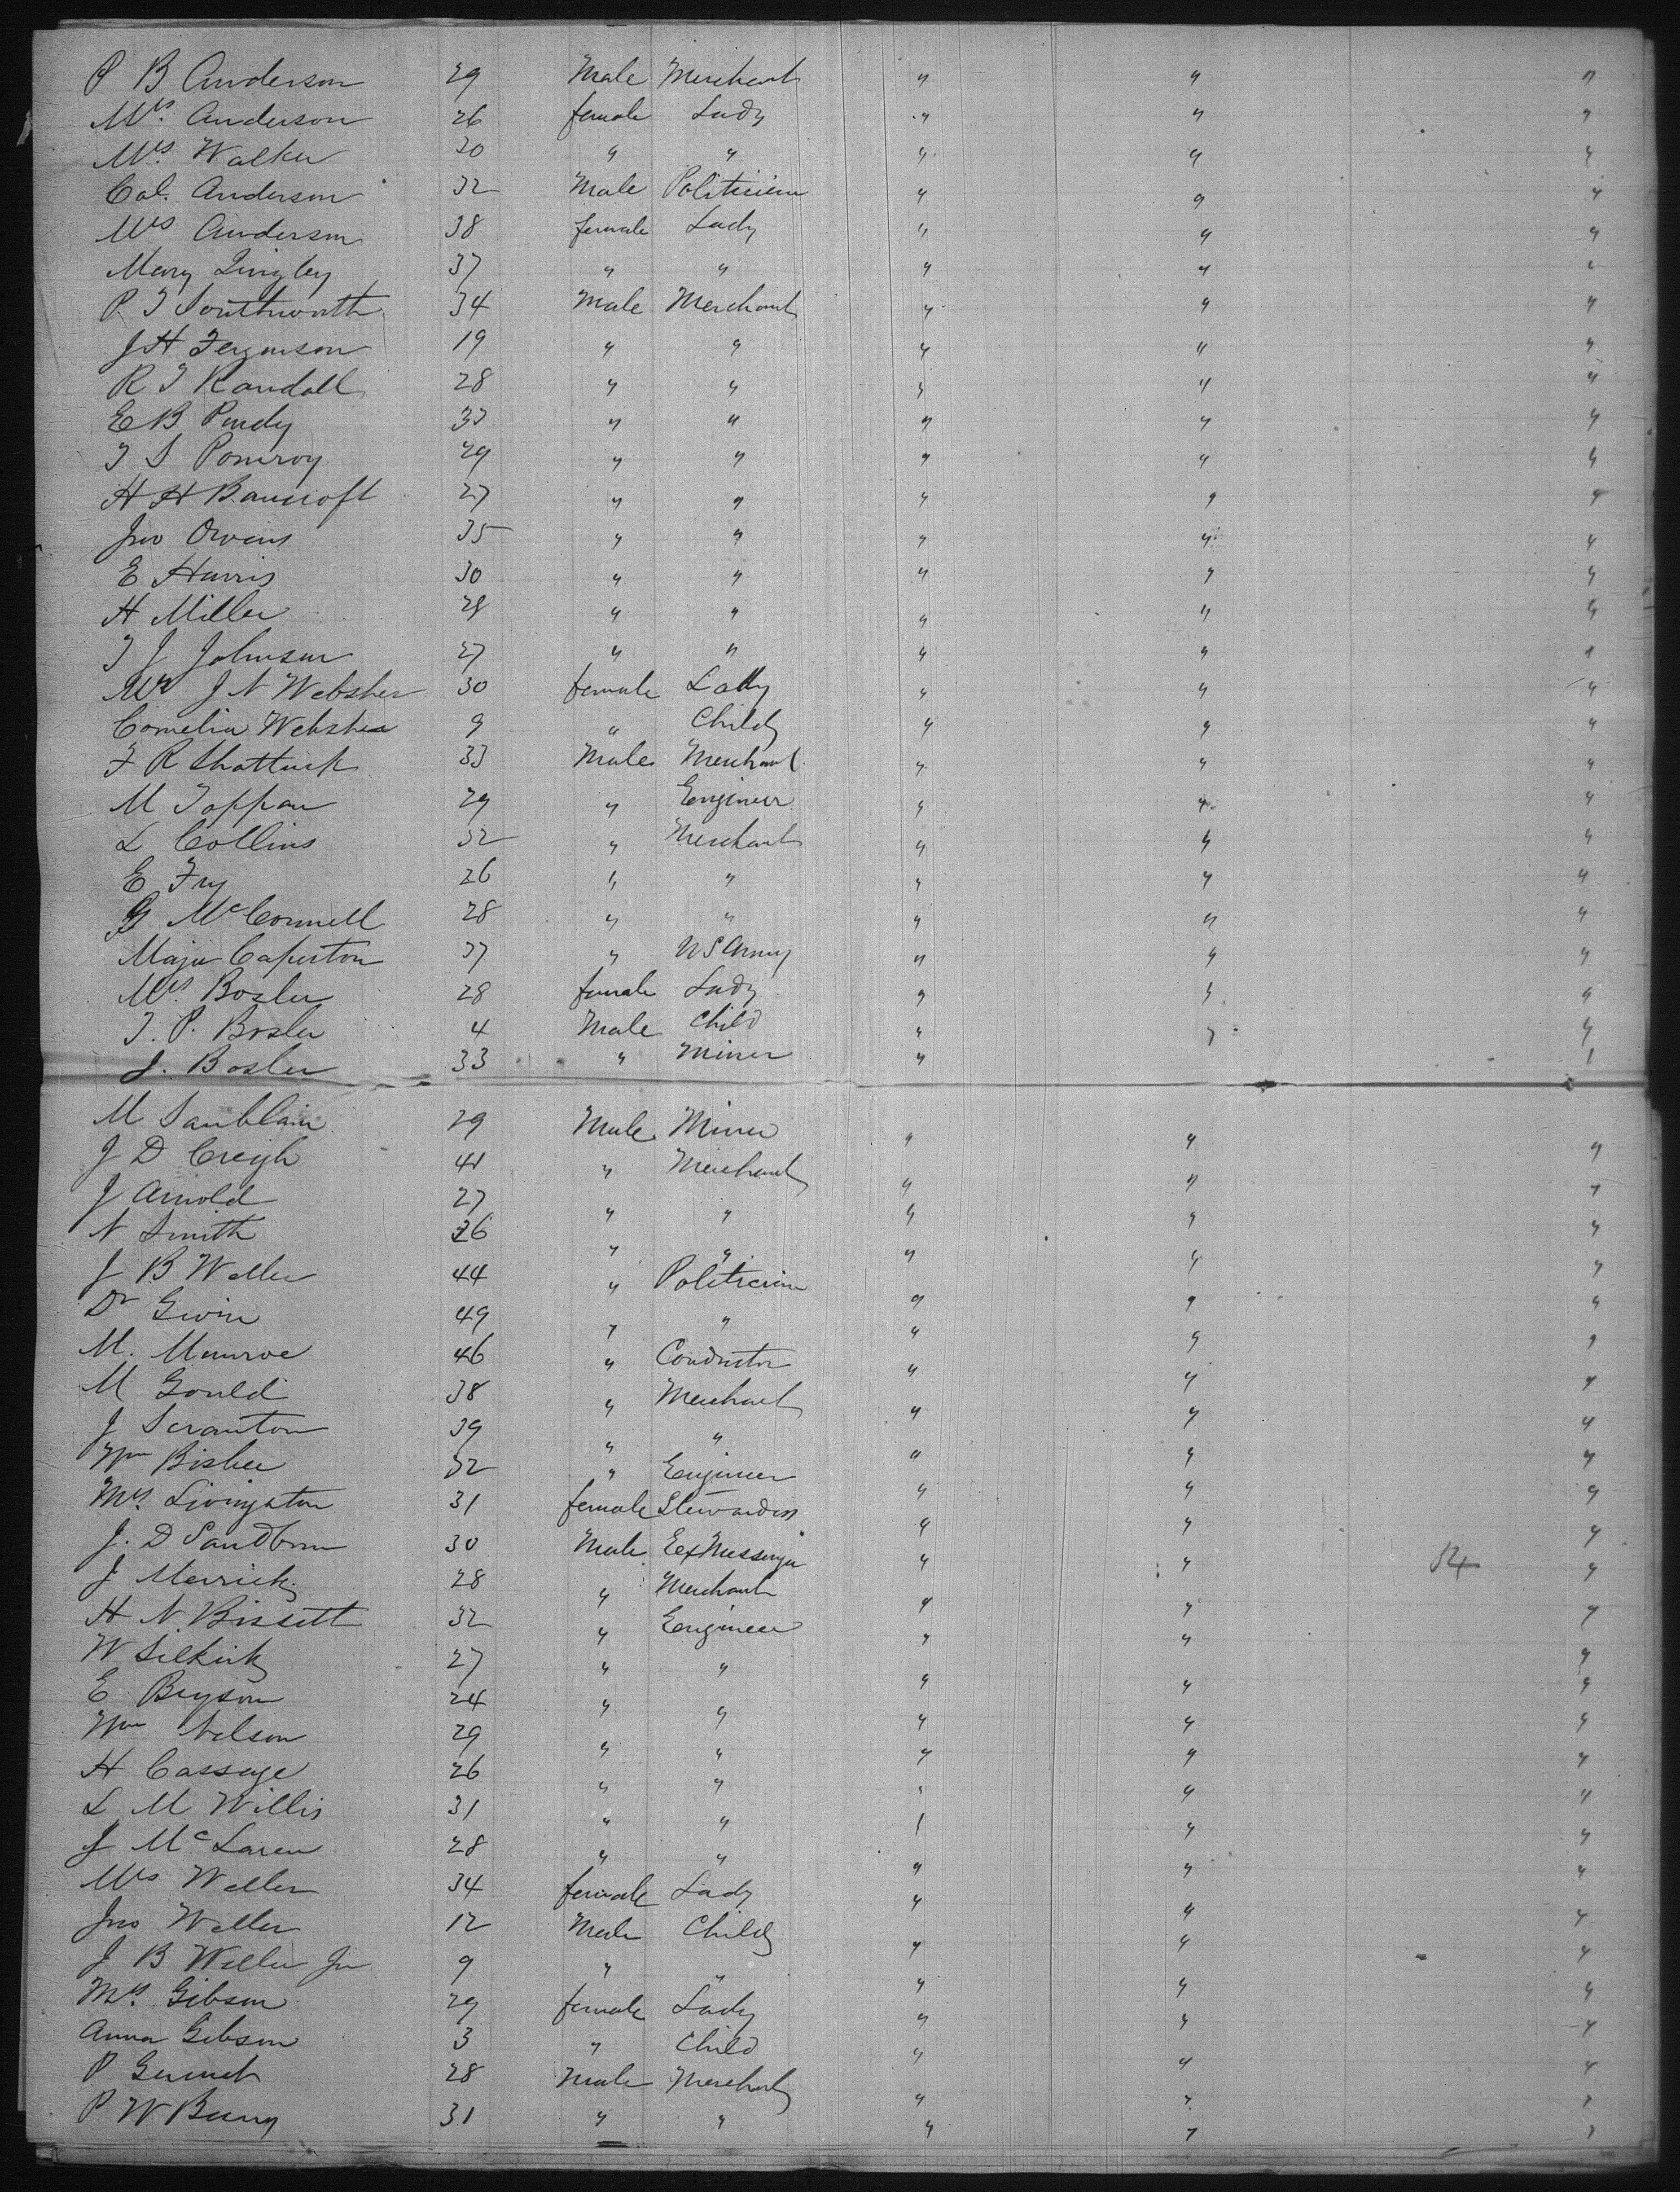 P B Anderson 29 Male Merchant " " "
Mrs. Anderson 26 female Lady " " "
Mrs. Walker 30 " " " " "
Col. Anderson 32 Male Politician " " "
Mrs Anderson 38 female Lady " " "
Mary Lingley 37 " " " " "
P. T Southworth 34 Male Merchant " " "
J H Ferguson 19 " " " " "
R T Randall 28 " " " " "
E B Purdy 33 " " " " "
T S Pomroy 29 " " " " "
H H Bancroft 27 " " " " "
Jno Owens 35 " " " " "
E Harris 30 " " " " "
H Miller 28 " " " " "
T J Johnson 27 " " " " "
Mrs J N Webster 30 female Lady " " "
Cornelia Webster 9 " Child " " "
F R Shattuck 33 Male Merchant " " "
M Toppan 29 " Engineer " " "
L Collins 32 " Merchant " " "
E Fry 26 " " " " "
G McConnell 28 " " " " "
Major Caperton 37 " U S Army " " "
Mrs. Bosler 28 female Lady " " "
T. P. Bosler 4 Male Child " " "
J. Bosler 33 " Miner " "
M Sanblain 29 Male Miner " " "
J D Creigh 41 " Merchant " " "
J Arnold 27 " " " " "
N Smith 26 " " " " "
J B Weller 44 " Politician " " "
Dr Gwin 49 " " " " "
M. Munroe 46 " Conductor " " "
M Gould 38 " Merchant " " "
J Scranton 39 " " " " "
Wm Bisbee 32 " Engineer " " "
Mrs. Livingston 31 female Stewardess " " "
J. D Sandborn 30 Male Ex Messenger " " 54 "
J Merrick 28 " Merchant " " "
H N Bissett 32 " Engineer " " "
W Silkirk 27 " " " " "
E Bryson 24 " " " " "
Wm Nelson 29 " " " " "
H Cassaye 26 " " " " "
L M Willis 31 " " " " "
J McLaren 28 " " " " "
Mrs Weller 34 female Lady " " "
Jno Weller 12 Male Child " " "
J B Weller Jr 9 " " " " "
Mrs. Gibson 29 female Lady " " "
Anna Gibson 3 " Child " " "
P 28 Male Merchant " " "
P W 31 " " " " "